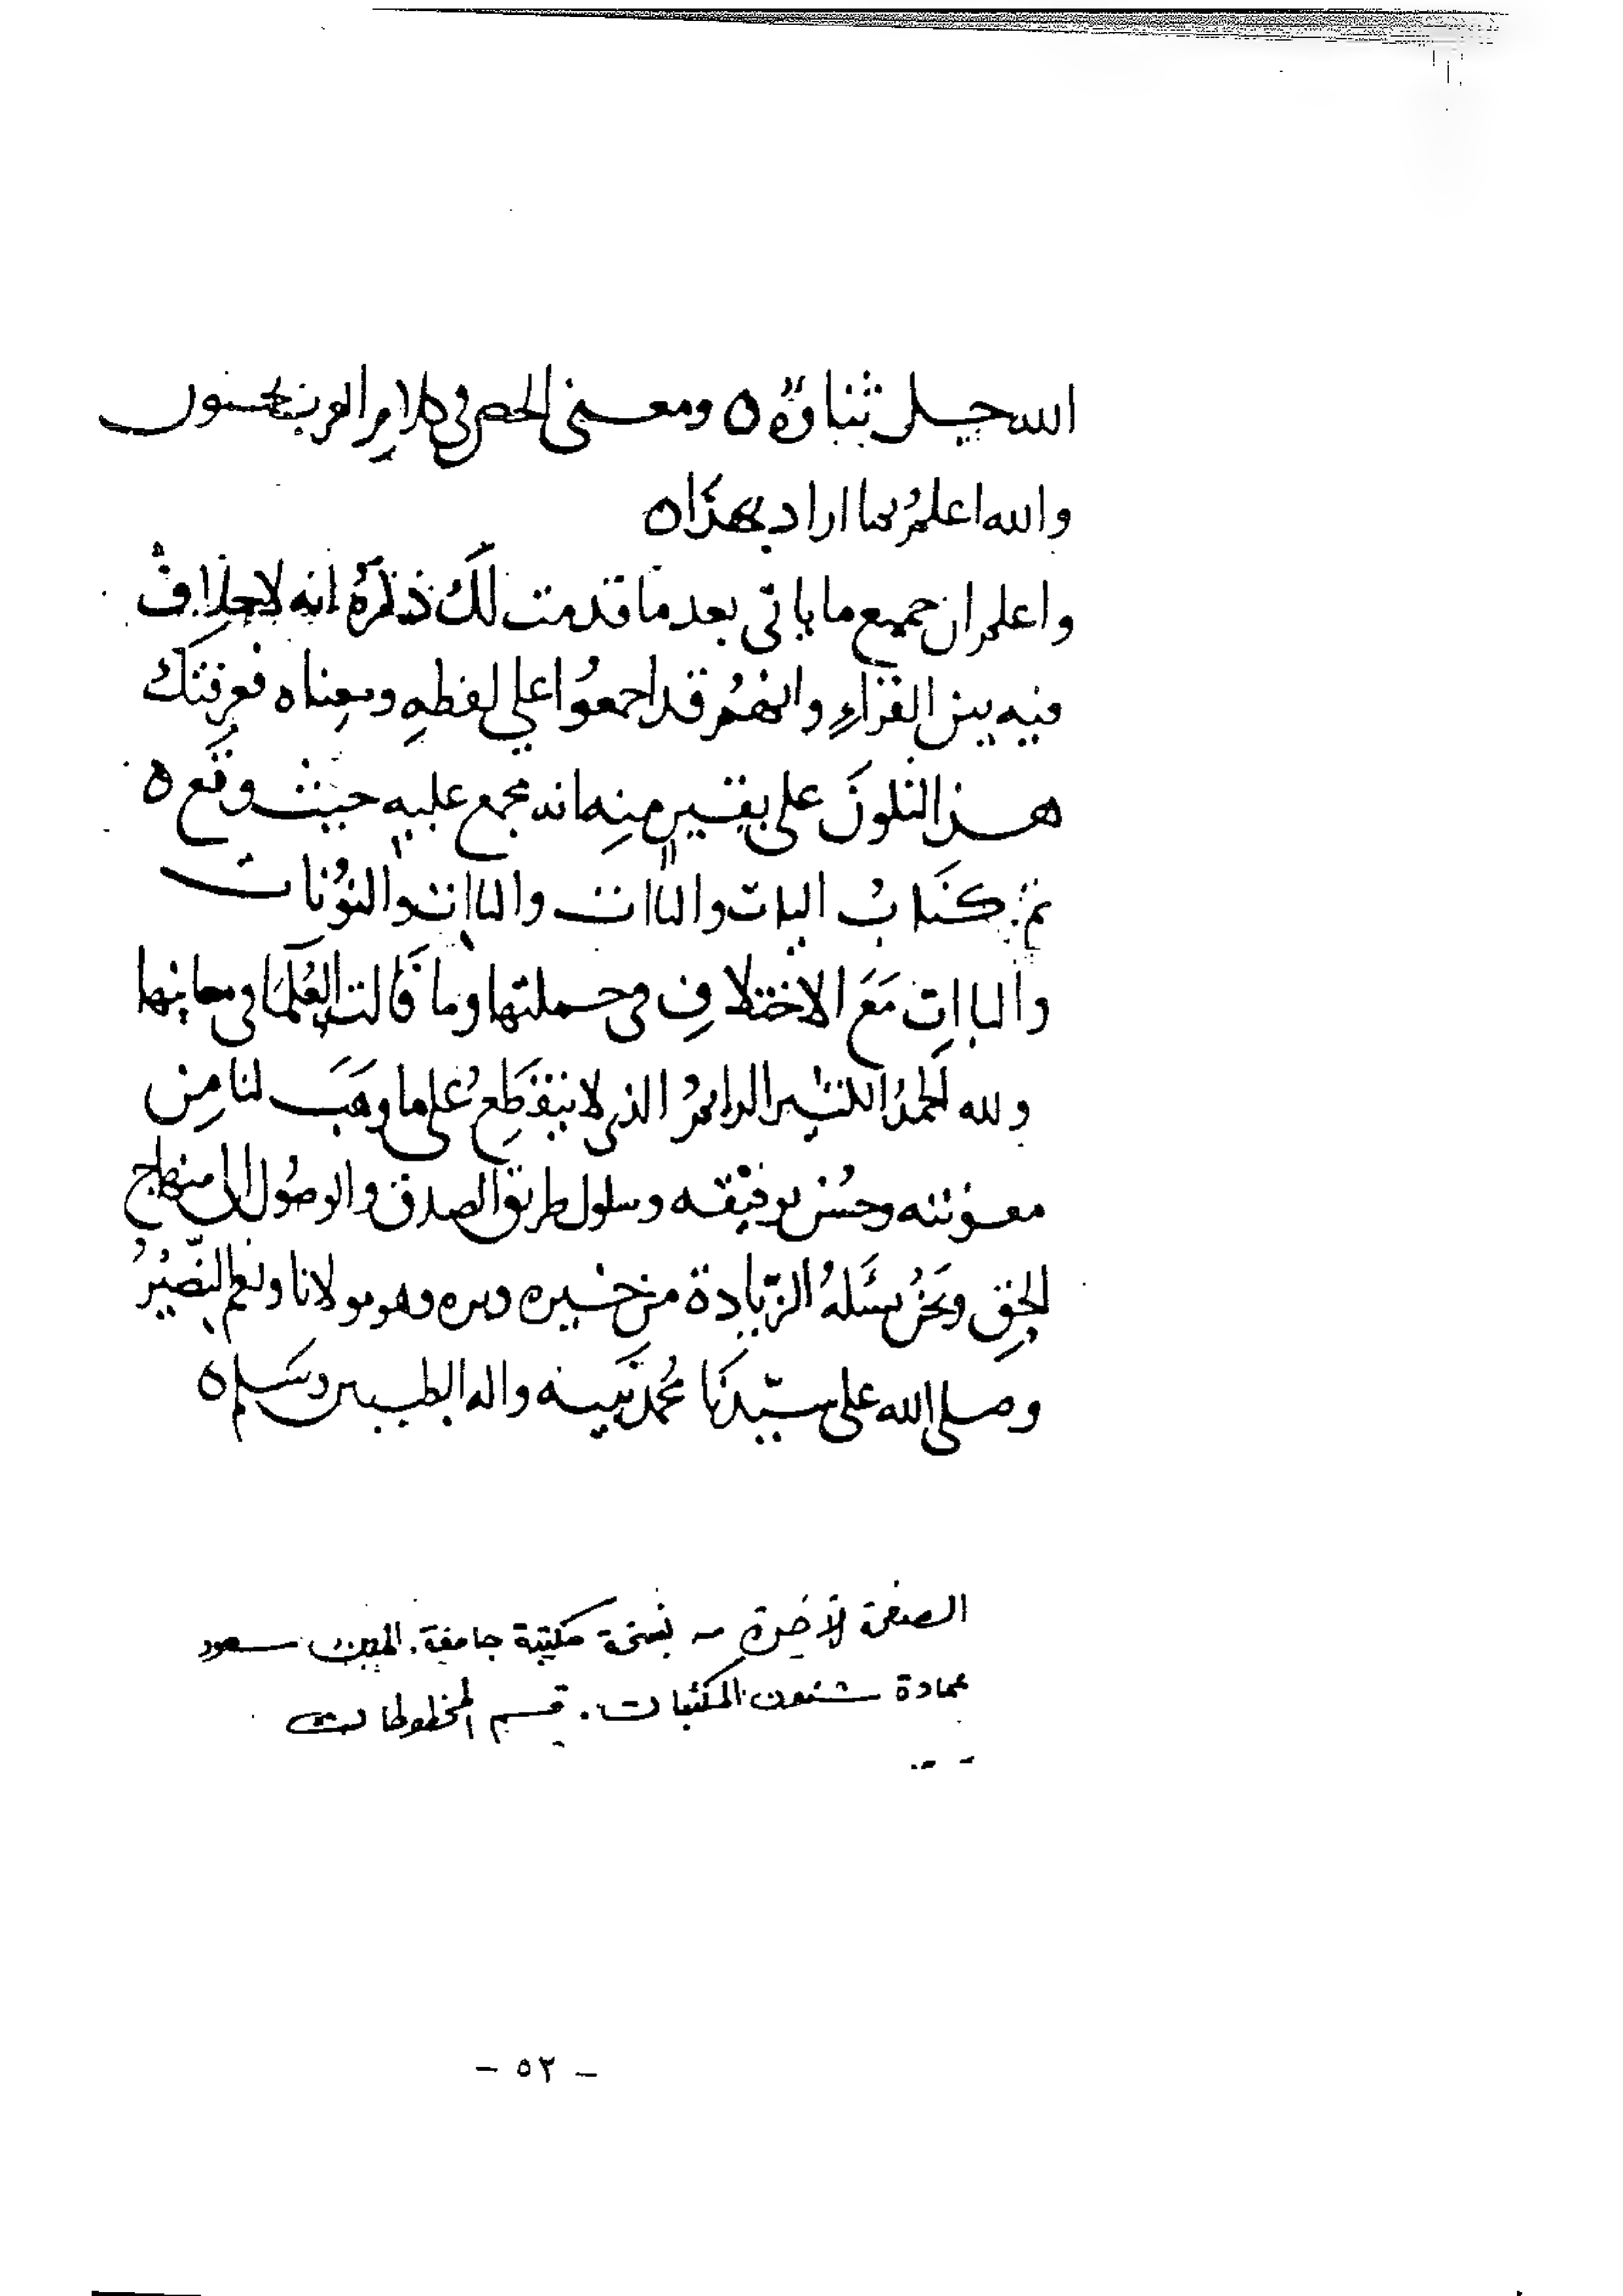 الله جل ثناؤه ٥ ومعنى الحصر في كلام العرب
والله اعلم بما اراد بهذا ٥
واعلم ان جميع ما ياتي بعد ما قدمت لك ذكره انه لا خلاف
فيه بين القراء وانهم قد اجمعوا على لفظه ومعناه فعرفتك
هذا لتكون على يقين منه انه مجمع عليه حيث وقع ٥
تم كتاب اليات والتاات والثاات والنونات
والباات مع الاختلاف في جملتها وما قالت العلما في معانيها
ولله الحمد الكثير الدائم الذي لا ينقطع على ما وهب لنا من
معونته وحسن توفيقه وسلوك طريق الصدق والوصول الى منهاج
الحق ونحن نسئله الزيادة من خيره وبره وهو مولانا ونعم النصير
وصلى الله على سيدنا محمد نبيه واله الطيبين وسلم ٥
الصفحة الأخيرة من نسخة مكتبة جامعة الملك سعود
عمادة شئون المكتبات . قسم المخطوطات
– ٥٢ –